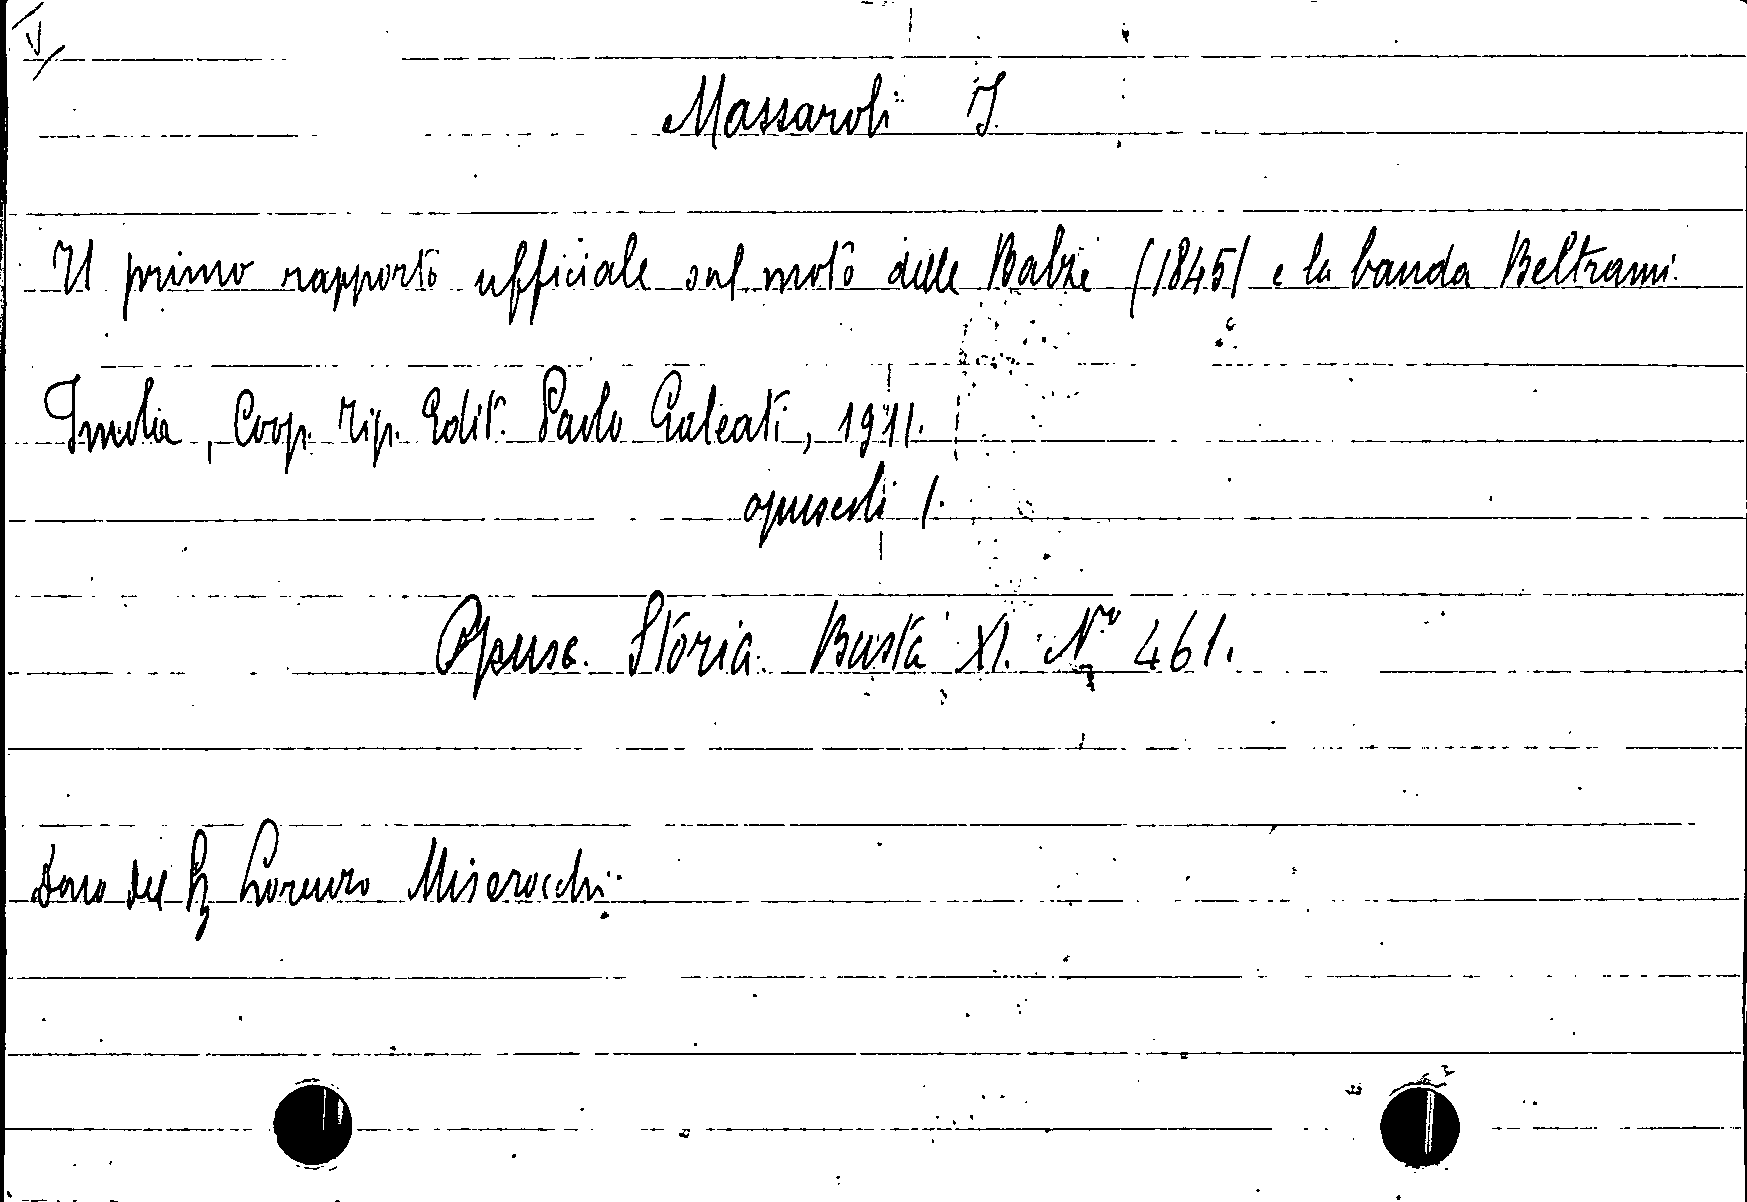 V
Massaroli I.
Il primo rapporto ufficiale sul moto delle Balze (1845) e la banda Beltrami.
Imola, Coop. Tip. Edit. Paolo Galeati, 1911.
opuscoli 1.
Opusc. Storia. Busta XI. No 461.
Dono del Lorenzo Miserocchi.